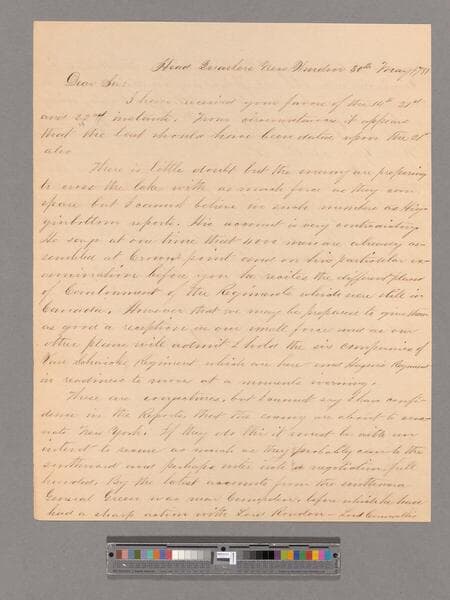 Head Quarters New Windsor 30th May 1781
Dear Sir
I have received your favors of the 14th 21st
and 22nd instants. From circumstances it appears
that the last should have been dated upon the 21st
also
There is little doubt but the enemy are preparing
to cross the lake with as much force as they can
spare but I cannot believe in such number as Hig
ginbottom reports. His account is very contradictory
He says at one time that 4000 men are already as-
sembled at Crown point and on his particular ex-
amination before you he recites the different places
of Cantonment of the Regiments which were still in
Canada. However that we may be prepared to give them
as good a reception as our small force and as our
other plans will admit I hold the six companies of
Van Schaicks Regiment which are here and Regiment
in readiness to move at a moments warning.
There are conjectures, but I cannot say I have confi-
dence in the Reports that the enemy are about to evac-
uate New York. If they do this it must be with an
intent to secure as much as they probably can to the
southward and perhaps enter into a negotiation full
handed. By the latest accounts from the southward
General Green was near Campden, before which he had
had a sharp action with Lord Rawdon - Lord Cornwallis